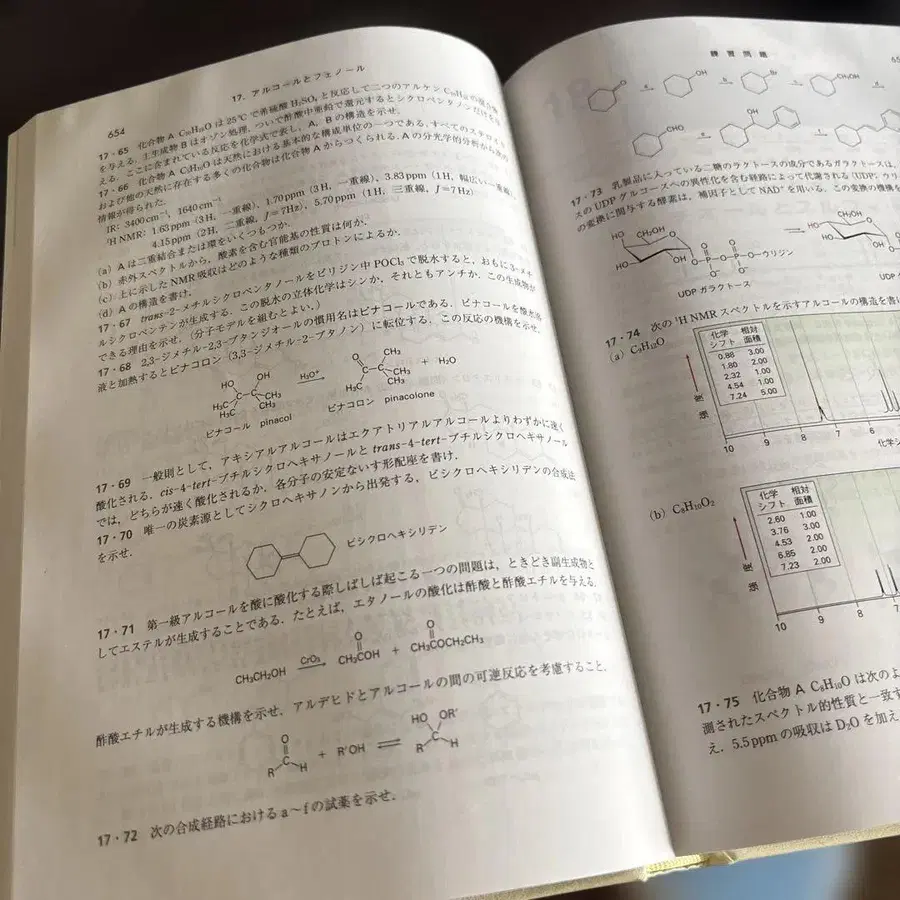 654
17. アルコールとフェノール
17・65 化合物 A C₁₀H₁₈O は 25℃ で希硫酸 H₂SO₄ と反応して二つのアルケン C₁₀H₁₆ の混合物
を与える.主生成物 B はオゾン処理,ついで酢酸中亜鉛で還元するとシクロペンタノンだけを与
える.ここに含まれている反応を化学式で表し,A, B の構造を示せ.
17・66 化合物 A C₅H₁₀O は天然における基本的な構成単位の一つである.すべてのステロイド
および他の天然に存在する多くの化合物は化合物 A からつくられる.A の分光学的分析から次の
情報が得られた.
IR: 3400 cm⁻¹, 1640 cm⁻¹
¹H NMR: 1.63 ppm (3H, 一重線), 1.70 ppm (3H, 一重線), 3.83 ppm (1H, 幅広い一重線),
4.15 ppm (2H, 二重線, J=7Hz), 5.70 ppm (1H, 三重線, J=7Hz)
(a) A は二重結合または環をいくつもつか.
(b) 赤外スペクトルから,酸素を含む官能基の性質は何か.
(c) 上に示した NMR 吸収はどのような種類のプロトンによるか.
(d) A の構造を書け.
17・67 trans-2-メチルシクロペンタノールをピリジン中 POCl₃ で脱水すると,おもに3-メチ
ルシクロペンテンが生成する.この脱水の立体化学はシンか,それともアンチか.この生成物が
できる理由を示せ.(分子モデルを組むとよい.)
17・68 2,3-ジメチル-2,3-ブタンジオールの慣用名はピナコールである.ピナコールを酸水溶
液と加熱するとピナコロン (3,3-ジメチル-2-ブタノン) に転位する.この反応の機構を示せ.
HO OH H₃C H₃C CH₃ CH₃
H₃O⁺
O CH₃ H₃C CH₃ CH₃ + H₂O
ピナコール pinacol
ピナコロン pinacolone
17・69 一般則として,アキシアルアルコールはエクアトリアルアルコールよりわずかに速く
酸化される.cis-4-tert-ブチルシクロヘキサノールと trans-4-tert-ブチルシクロヘキサノール
では,どちらが速く酸化されるか.各分子の安定ないす形配座を書け.
17・70 唯一の炭素源としてシクロヘキサノンから出発する,ビシクロヘキシリデンの合成法
を示せ.
ビシクロヘキシリデン
17・71 第一級アルコールを酸に酸化する際しばしば起こる一つの問題は,ときどき副生成物と
してエステルが生成することである.たとえば,エタノールの酸化は酢酸と酢酸エチルを与える.
CH₃CH₂OH CrO₃ CH₃COH + CH₃COCH₂CH₃
酢酸エチルが生成する機構を示せ.アルデヒドとアルコールの間の可逆反応を考慮すること.
R C O H + R'OH ⇌ HO OR' R C H
17・72 次の合成経路における a〜f の試薬を示せ.
練習問題
O a OH b Br c CH₂OH d
CHO e OH f
17・73 乳製品に入っている二糖のラクトースの成分であるガラクトースは,
の変換に関与する酵素は,補因子として NAD⁺ を用いる.この変換の機構を
HO CH₂OH O HO O P O P O ウリジン
UDP ガラクトース
17・74 次の ¹H NMR スペクトルを示すアルコールの構造を書け
(a) C₉H₁₂O
化学シフト 相対面積
0.88 3.00
1.80 2.00
2.32 1.00
4.54 1.00
7.24 5.00
強度
10 9 8 7 6
化学シ
(b) C₈H₁₀O₂
化学シフト 相対面積
2.60 1.00
3.76 3.00
4.53 2.00
6.85 2.00
7.23 2.00
強度
10 9 8 7
17・75 化合物 A C₈H₁₀O は次のよ
測されたスペクトル的性質と一致す
え.5.5 ppm の吸収は D₂O を加え